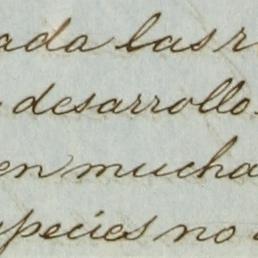 ada las r
desarrollo
en mucha
species no